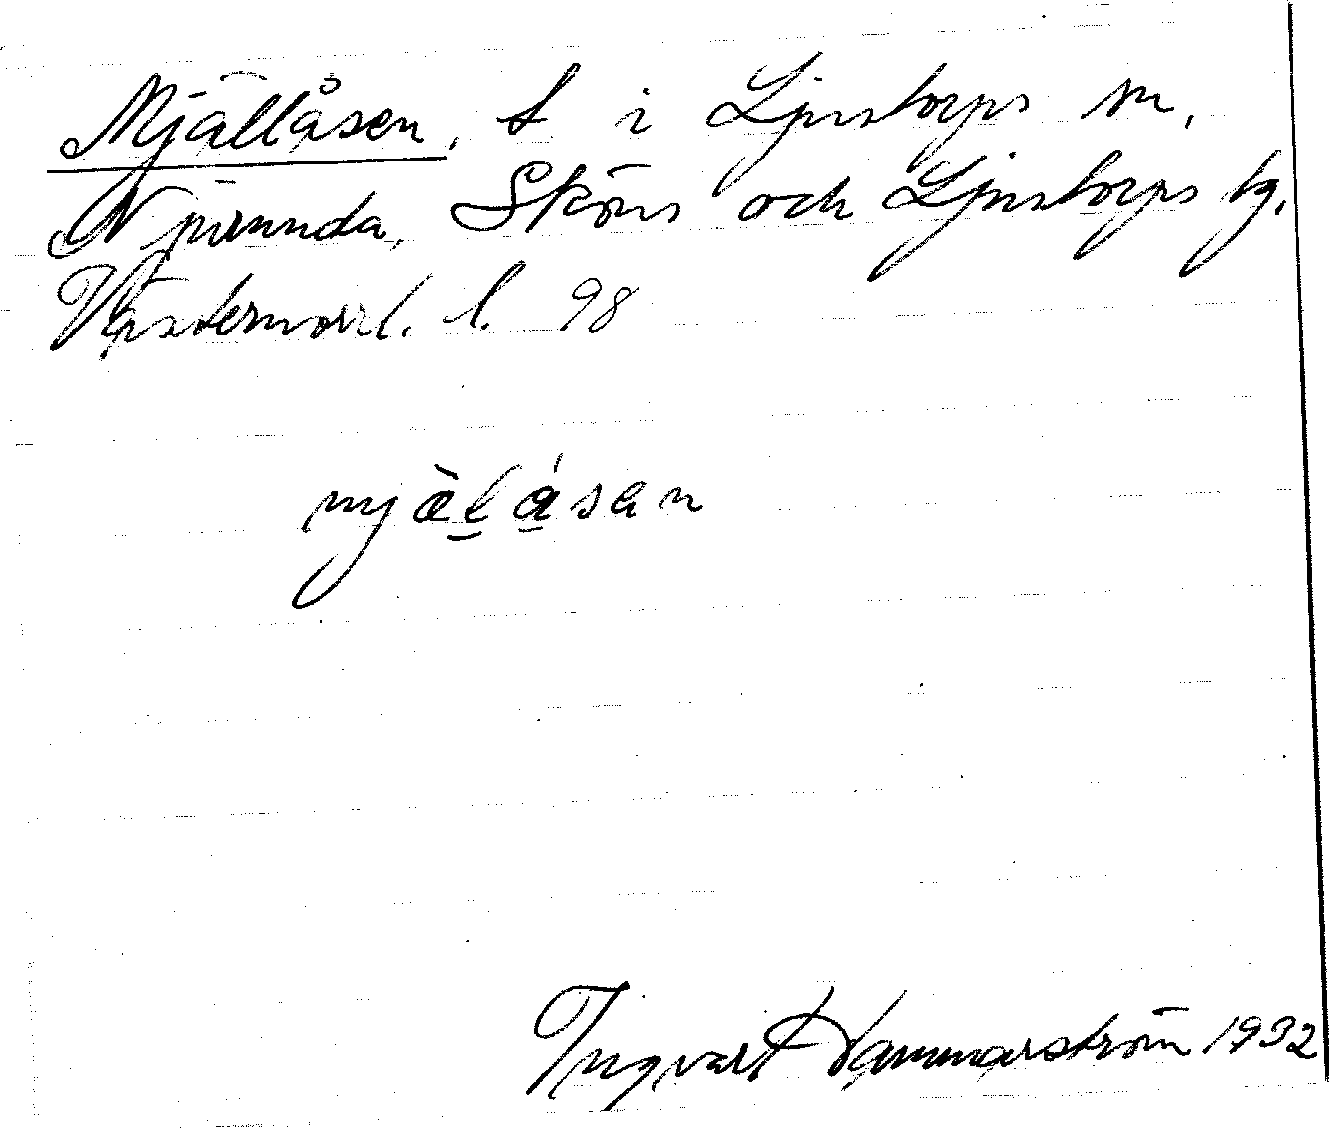 Mjällåsen, t i Ljustorps sn,
Njurunda, Sköns och Ljustorps tg,
Västernorrl. l. 98
mjäl̲å̲san
Ingvart Hammarström 1932